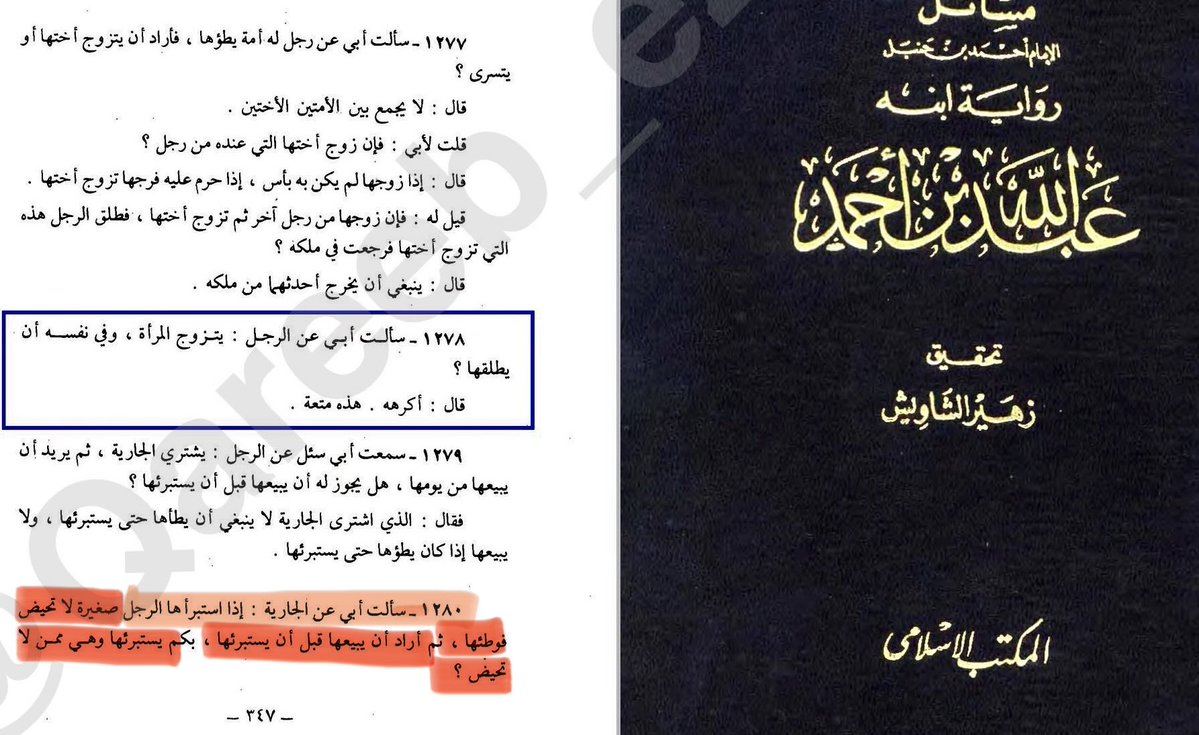 ١٢٧٧ ـ سألت أبي عن رجل له أمة يطؤها ، فأراد أن يتزوج أختها أو
يتسرى ؟
قال : لا يجمع بين الأمتين الأختين .
قلت لأبي : فإن زوج أختها التي عنده من رجل ؟
قال : إذا زوجها لم يكن به بأس ، إذا حرم عليه فرجها تزوج أختها .
قيل له : فإن زوجها من رجل آخر ثم تزوج أختها ، فطلق الرجل هذه
التي تزوج أختها فرجعت في ملكه ؟
قال : ينبغي أن يخرج أحدثهما من ملكه .
١٢٧٨ ـ سألت أبي عن الرجل : يتزوج المرأة ، وفي نفسه أن
يطلقها ؟
قال : أكرهه . هذه متعة .
١٢٧٩ ـ سمعت أبي سئل عن الرجل : يشتري الجارية ، ثم يريد أن
يبيعها من يومها ، هل يجوز له أن يبيعها قبل أن يستبرئها ؟
فقال : الذي اشترى الجارية لا ينبغي أن يطأها حتى يستبرئها ، ولا
يبيعها إذا كان يطؤها حتى يستبرئها .
١٢٨٠ ـ سألت أبي عن الجارية : إذا استبرأها الرجل صغيرة لا تحيض
فوطئها ، ثم أراد أن يبيعها قبل أن يستبرئها ، بكم يستبرئها وهي ممن لا
تحيض ؟
ـ ٣٤٧ ـ
مسائل
الإمام أحمد بن حنبل
رواية ابنه
عبد الله بن أحمد
تحقيق
زهير الشاويش
المكتب الإسلامي
@Qareeb_e